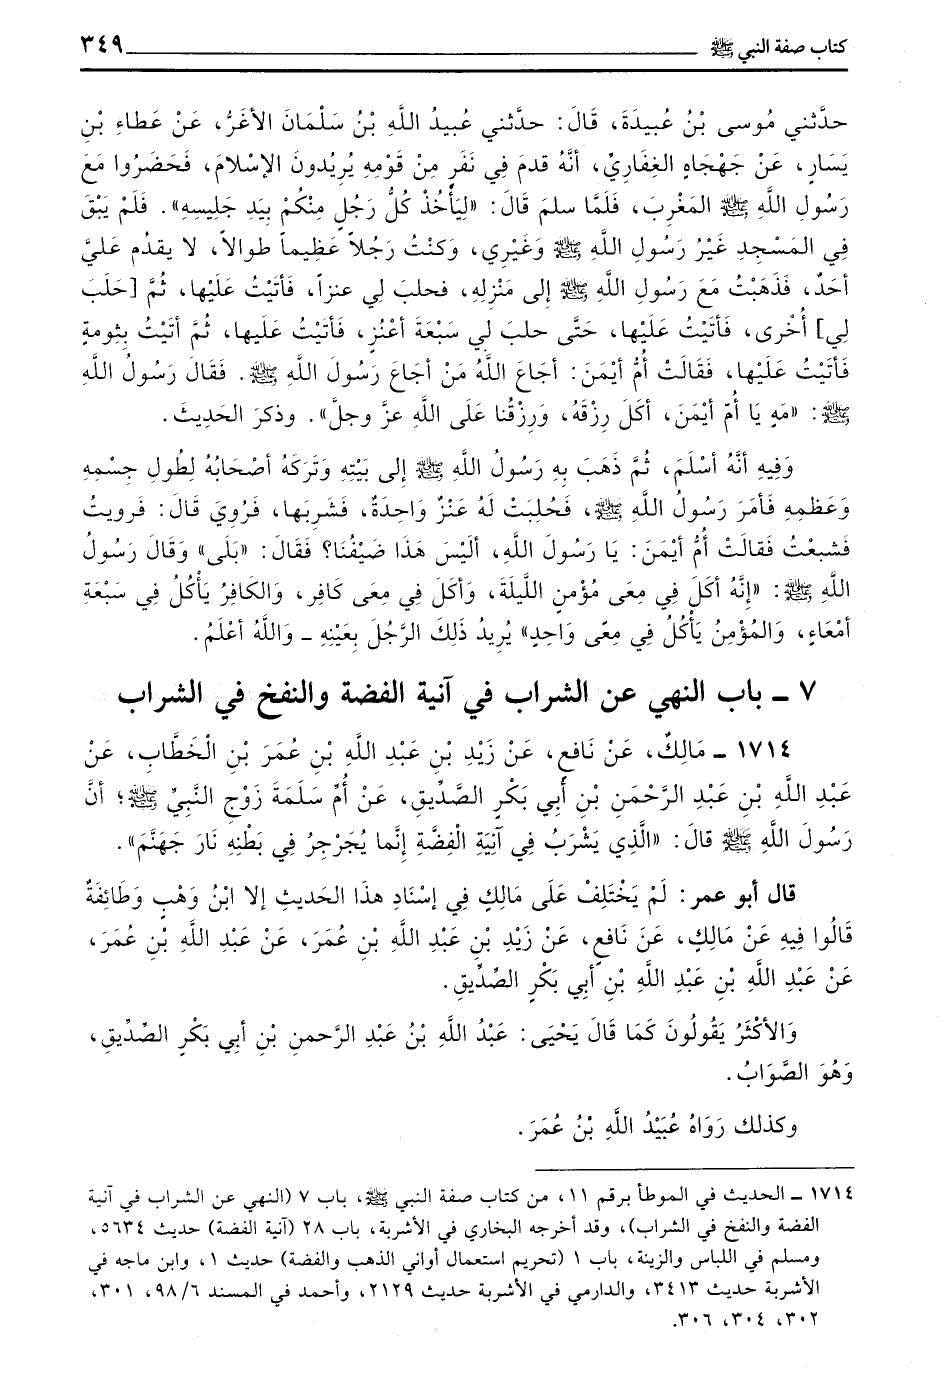 كتاب صفة النبي ﷺ ٣٤٩
حدَّثني مُوسى بْنُ عُبيدَةَ، قَالَ: حدَّثني عُبيدُ اللَّهِ بْنُ سَلْمَانَ الأغَرُّ، عَنْ عَطاءِ بْنِ
يَسَارٍ، عَنْ جَهْجَاهٍ الغِفَاريِّ، أنَّهُ قدمَ فِي نَفَرٍ مِنْ قَوْمِهِ يُرِيْدُونَ الإسْلَامَ، فَحَضَرُوا مَعَ
رَسُولِ اللَّهِ ﷺ المَغْرِبَ، فَلَمَّا سلمَ قَالَ: «لِيَأْخُذْ كُلُّ رَجُلٍ مِنْكُمْ بِيَدِ جَلِيسِهِ». فَلَمْ يَبْقَ
فِي المَسْجِدِ غَيْرُ رَسُولِ اللَّهِ ﷺ وَغَيْرِي، وَكنْتُ رَجُلاً عَظِيماً طوالاً، لا يقدُم عَليَّ
أحَدٌ، فَذَهَبْتُ مَعَ رَسُولِ اللَّهِ ﷺ إلى مَنْزِلِهِ، فحلبَ لي عنزاً، فَأتَيْتُ عَلَيْها، ثُمَّ [حَلَبَ
لِي] أُخْرى، فَأتَيْتُ عَلَيْها، حَتَّى حلبَ لي سَبْعَةَ أعْنُزٍ، فَأتَيْتُ عَلَيها، ثُمَّ أتَيْتُ بِثومةٍ
فَأتَيْتُ عَلَيْها، فَقَالَتْ أُمُّ أيْمَنَ: أجَاعَ اللَّهُ مَنْ أجَاعَ رَسُولَ اللَّهِ ﷺ. فَقَالَ رَسُولُ اللَّهِ
ﷺ: «مَهٍ يَا أُمّ أيْمَنَ، أكَلَ رِزْقَهُ، وَرِزْقُنا عَلَى اللَّهِ عزَّ وجلَّ». وذكرَ الحَدِيثَ.
وَفِيهِ أنَّهُ أسْلَمَ، ثُمَّ ذَهَبَ بِهِ رَسُولُ اللَّهِ ﷺ إلى بَيْتِهِ وَتَرَكَهُ أصْحَابُهُ لِطُولِ جِسْمِهِ
وَعَظمِهِ فَأمَرَ رَسُولُ اللَّهِ ﷺ، فَحُلِبَتْ لَهُ عَنْزٌ وَاحِدَةٌ، فَشَرِبَها، فَرُوِيَ قَالَ: فَرويتُ
فَشبعْتُ فَقالَتْ أُمُّ أيْمَنَ: يَا رَسُولَ اللَّهِ، ألَيْسَ هَذَا ضَيْفُنَا؟ فَقَالَ: «بَلَى» وَقَالَ رَسُولُ
اللَّهِ ﷺ: «إنَّهُ أكَلَ فِي مِعَى مُؤْمنٍ اللَّيلَةَ، وَأكَلَ فِي مِعَى كَافِرٍ، وَالكافِرُ يَأْكُلُ فِي سَبْعَةِ
أمْعَاءٍ، وَالمُؤْمِنُ يَأْكُلُ فِي مِعًى وَاحِدٍ» يُرِيدُ ذَلِكَ الرَّجُلَ بِعَيْنِهِ ـ وَاللَّهُ أعْلَمُ.
٧ ـ باب النهي عن الشراب في آنية الفضة والنفخ في الشراب
١٧١٤ ـ مَالِكٌ، عَنْ نَافعٍ، عَنْ زَيْدِ بْنِ عَبْدِ اللَّهِ بْنِ عُمَرَ بْنِ الْخَطَّابِ، عَنْ
عَبْدِ اللَّهِ بْنِ عَبْدِ الرَّحْمَنِ بْنِ أَبِي بَكْرٍ الصَّدِّيقِ، عَنْ أُمِّ سَلَمَةَ زَوْجِ النَّبِيِّ ﷺ؛ أنَّ
رَسُولَ اللَّهِ ﷺ قالَ: «الَّذِي يَشْرَبُ فِي آنِيَةِ الْفِضَّةِ إنَّما يُجَرْجِرُ فِي بَطْنِهِ نَارَ جَهَنَّمَ».
قال أبو عمر: لَمْ يَخْتَلِفْ عَلَى مَالِكٍ فِي إسْنَادِ هذَا الحَديثِ إلا ابْنُ وَهْبٍ وَطَائِفَةٌ
قَالُوا فِيهِ عَنْ مَالِكٍ، عَنَ نَافعٍ، عَنْ زَيْدِ بْنِ عَبْدِ اللَّهِ بْنِ عُمَرَ، عَنْ عَبْدِ اللَّهِ بْنِ عُمَرَ،
عَنْ عَبْدِ اللَّهِ بْنِ عَبْدِ اللَّهِ بْنِ أَبِي بَكْرٍ الصِّدِّيقِ.
وَالأكْثَرُ يَقُولُونَ كَمَا قَالَ يَحْيَى: عَبْدُ اللَّهِ بْنُ عَبْدِ الرَّحمنِ بْنِ أبي بَكْرٍ الصِّدِّيقِ،
وَهُوَ الصَّوَابُ.
وكذلك رَوَاهُ عُبَيْدُ اللَّهِ بْنُ عُمَرَ.
١٧١٤ ـ الحديث في الموطأ برقم ١١، من كتاب صفة النبي ﷺ، باب ٧ (النهي عن الشراب في آنية
الفضة والنفخ في الشراب)، وقد أخرجه البخاري في الأشربة، باب ٢٨ (آنية الفضة) حديث ٥٦٣٤،
ومسلم في اللباس والزينة، باب ١ (تحريم استعمال أواني الذهب والفضة) حديث ١، وابن ماجه في
الأشربة حديث ٣٤١٣، والدارمي في الأشربة حديث ٢١٢٩، وأحمد في المسند ٩٨/٦، ٣٠١،
٣٠٢، ٣٠٤، ٣٠٦.